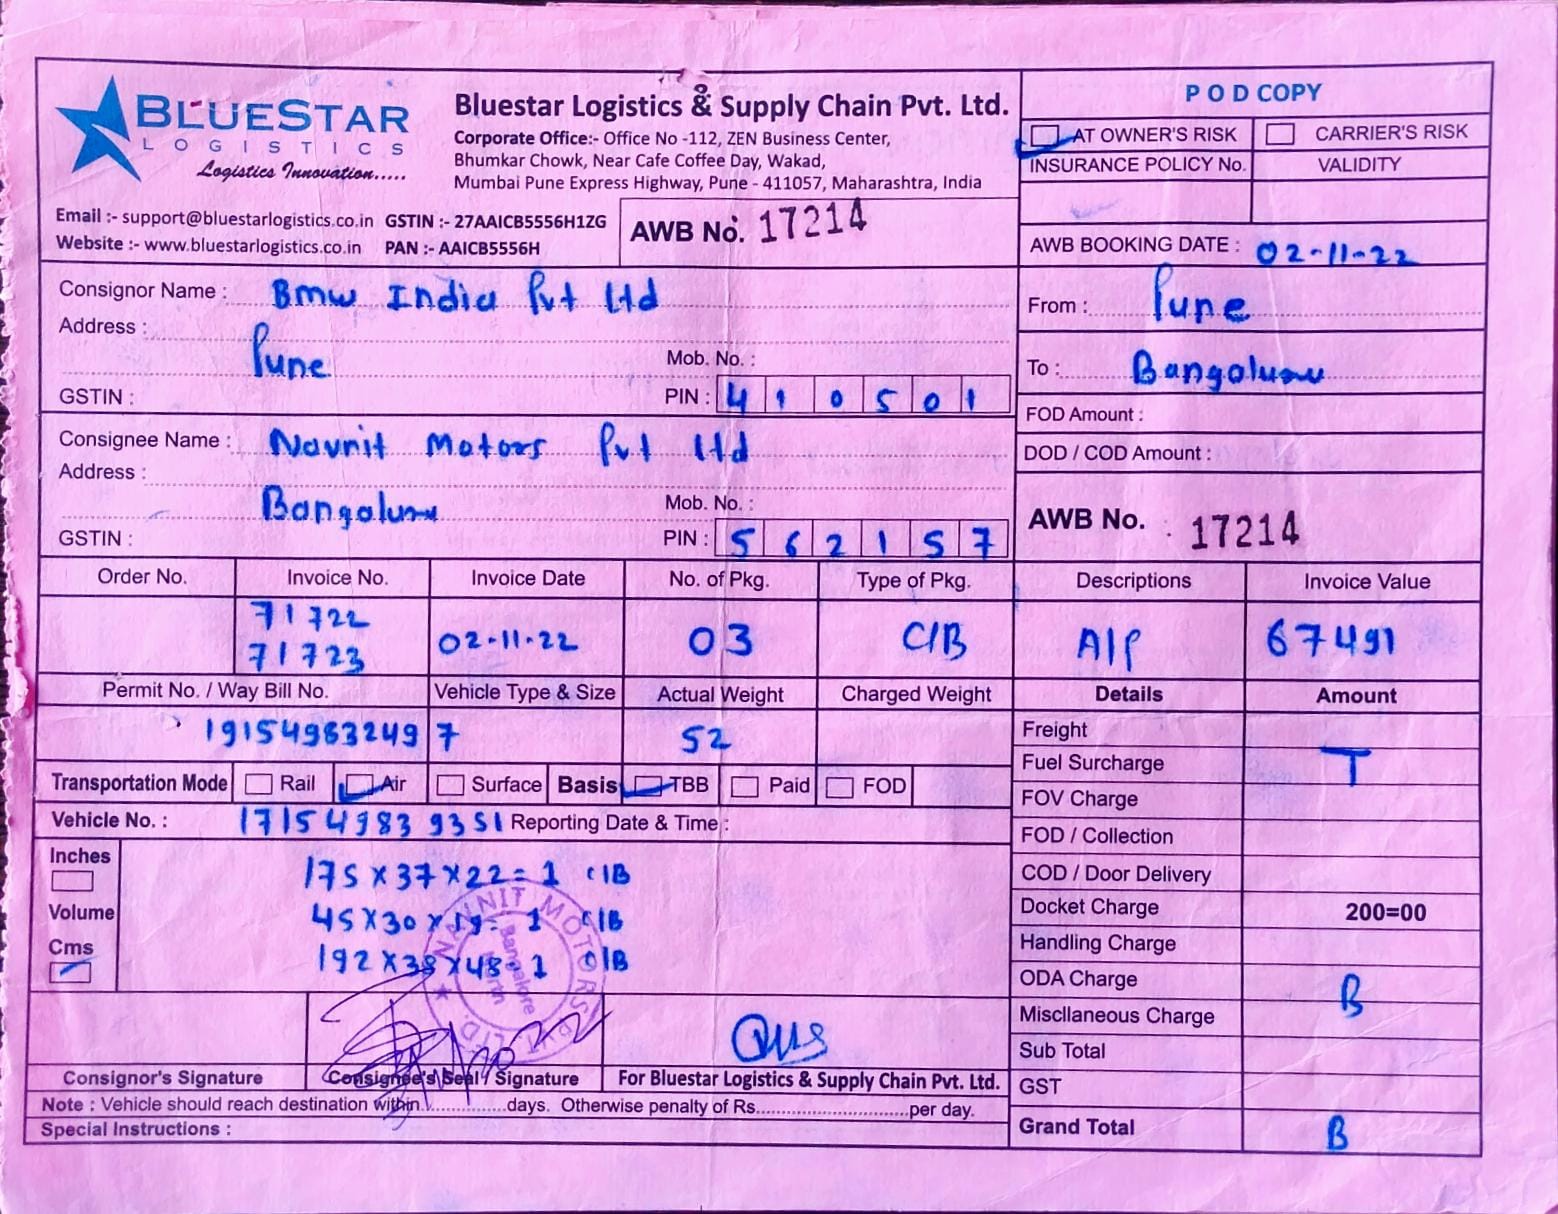 BLUESTAR
LOGISTICS
Logistics Innovation.....
Bluestar Logistics & Supply Chain Pvt. Ltd.
Corporate Office:- Office No -112, ZEN Business Center,
Bhumkar Chowk, Near Cafe Coffee Day, Wakad,
Mumbai Pune Express Highway, Pune - 411057, Maharashtra, India
Email :- support@bluestarlogistics.co.in GSTIN :- 27AAICB5556H1ZG
Website :- www.bluestarlogistics.co.in PAN :- AAICB5556H
AWB No. 17214
POD COPY
AT OWNER'S RISK CARRIER'S RISK
INSURANCE POLICY No. VALIDITY
AWB BOOKING DATE : 02-11-22
From : Pune
To : Bangaluru
FOD Amount :
DOD / COD Amount :
AWB No. 17214
Consignor Name : Bmw India Pvt Ltd
Address :
Pune Mob. No. :
GSTIN : PIN : 410501
Consignee Name : Navnit Motors Pvt Ltd
Address :
Bangaluru Mob. No. :
GSTIN : PIN : 562157
Order No. Invoice No. Invoice Date No. of Pkg. Type of Pkg. Descriptions Invoice Value
71722
71723 02-11-22 03 C/B A/P 67491
Permit No. / Way Bill No. Vehicle Type & Size Actual Weight Charged Weight Details Amount
191549832497 52
Transportation Mode Rail Air Surface Basis TBB Paid FOD
Vehicle No. : 171549839351 Reporting Date & Time :
Inches
Volume
Cms
175 X 37 X 22 = 1 C/B
45 X 30 X 19 = 1 C/B
192 X 38 X 48 = 1 C/B
NAVNIT MOTORS PVT. LTD.
Bangalore
North
Freight
Fuel Surcharge T
FOV Charge
FOD / Collection
COD / Door Delivery
Docket Charge 200=00
Handling Charge
ODA Charge B
Miscllaneous Charge
Sub Total
GST
Grand Total B
Consignor's Signature Consignee's Seal / Signature For Bluestar Logistics & Supply Chain Pvt. Ltd.
Note : Vehicle should reach destination within.................days. Otherwise penalty of Rs..................................per day.
Special Instructions :